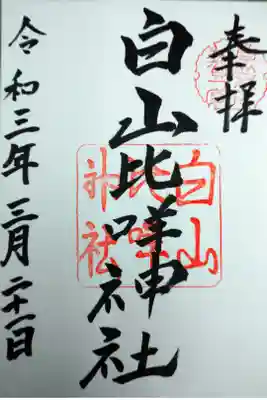 奉拝
白山比咩神社
令和三年三月二十一日
白山
比咩
神社